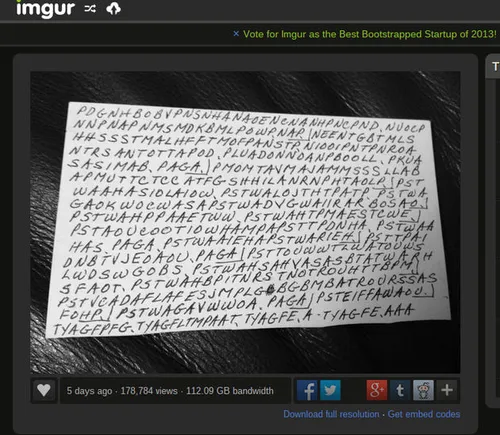 imgur
× Vote for Imgur as the Best Bootstrapped Startup of 2013!
T
PDGNHBOBVPNSNHANAOENCNANHPNCPND. NUOCP
NNPNAPNMSMDKBMLPOWPNAP. NEENTGBTMLS
HHSSSTMALHFFTMOFPANSTP. NIOOIPNTPNROA
NTRSANTOTTAPOD. PLUADONNOANPBOOLL. PKUA
SASIMAB. PAGA. PMOMTAVMAJAMMSSSLLAB
APMUTTCTCC ATFGSHHLANRNPHTAOLP. PST
WAAHASIOLAVOW. PSTWALOJTHTPATP PSTWA
GAOKWOCWASAPSTWADVGWAIIRAR BOSAO
PSTWAHPPAAETWW. PSTWAHTPMAESTCWE
PSTAOUCOOTIOWHAMPAPSTTPDNHA PSTWAA
HAS. PAGA. PSTWAAIEHAPSTWARIEH PSTTPAI
DNBTVJEOAOU. PAGA PSTTOUWWTLWATOUWS
LWDSWGOBS. PSTWAHSAHVASASBTATWARH
SFAOT. PSTWAHBPITNRST NOTROUHTTBPM
PSTVCADAFLAFESJMPLGBBGBMBATROURSSAS
FOHP. PSTWAGAVWWOA. PAGA PSTEIFFAWAOU.
TYAGFPFG. TYAGFLTMPAAT. TYAGFE.A - TYAGFE.AAA
5 days ago · 178,784 views · 112.09 GB bandwidth
Download full resolution · Get embed codes